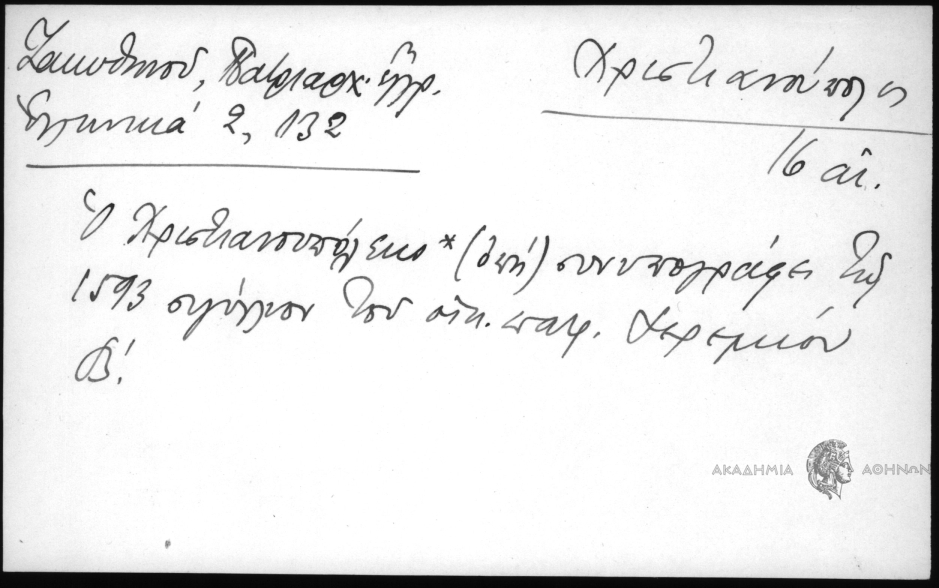 Ζακυθηνού, Πατριαρχ. έγγρ.
Ἑλληνικά 2, 132
Χριστιανούπολις
16 αἰ.
Ὁ Χριστιανουπόλεως * (ὀπή) συνυπογράφει τῷ
1593 σιγίλλιον τοῦ οἰκ. πατρ. Ἱερεμίου
Β΄.
ΑΚΑΔΗΜΙΑ ΑΘΗΝΩΝ